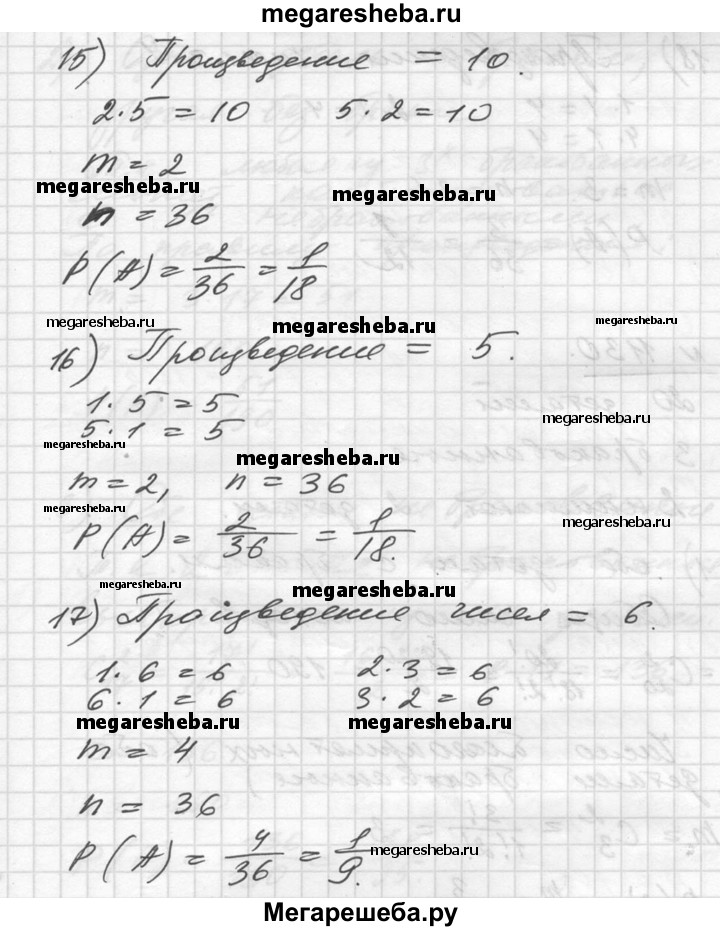 megaresheba.ru
15) Произведение = 10.
2·5 = 10 5·2 = 10
m = 2
megaresheba.ru megaresheba.ru
n = 36
P(A) = 2/36 = 1/18
megaresheba.ru megaresheba.ru megaresheba.ru
16) Произведение = 5.
1·5 = 5
megaresheba.ru
5·1 = 5
megaresheba.ru megaresheba.ru
m = 2, n = 36
megaresheba.ru megaresheba.ru
P(A) = 2/36 = 1/18.
megaresheba.ru megaresheba.ru
17) Произведение чисел = 6.
1·6 = 6 2·3 = 6
6·1 = 6 3·2 = 6
megaresheba.ru megaresheba.ru
m = 4
n = 36
P(A) = 4/36 = 1/9.
megaresheba.ru
Мегарешеба.ру